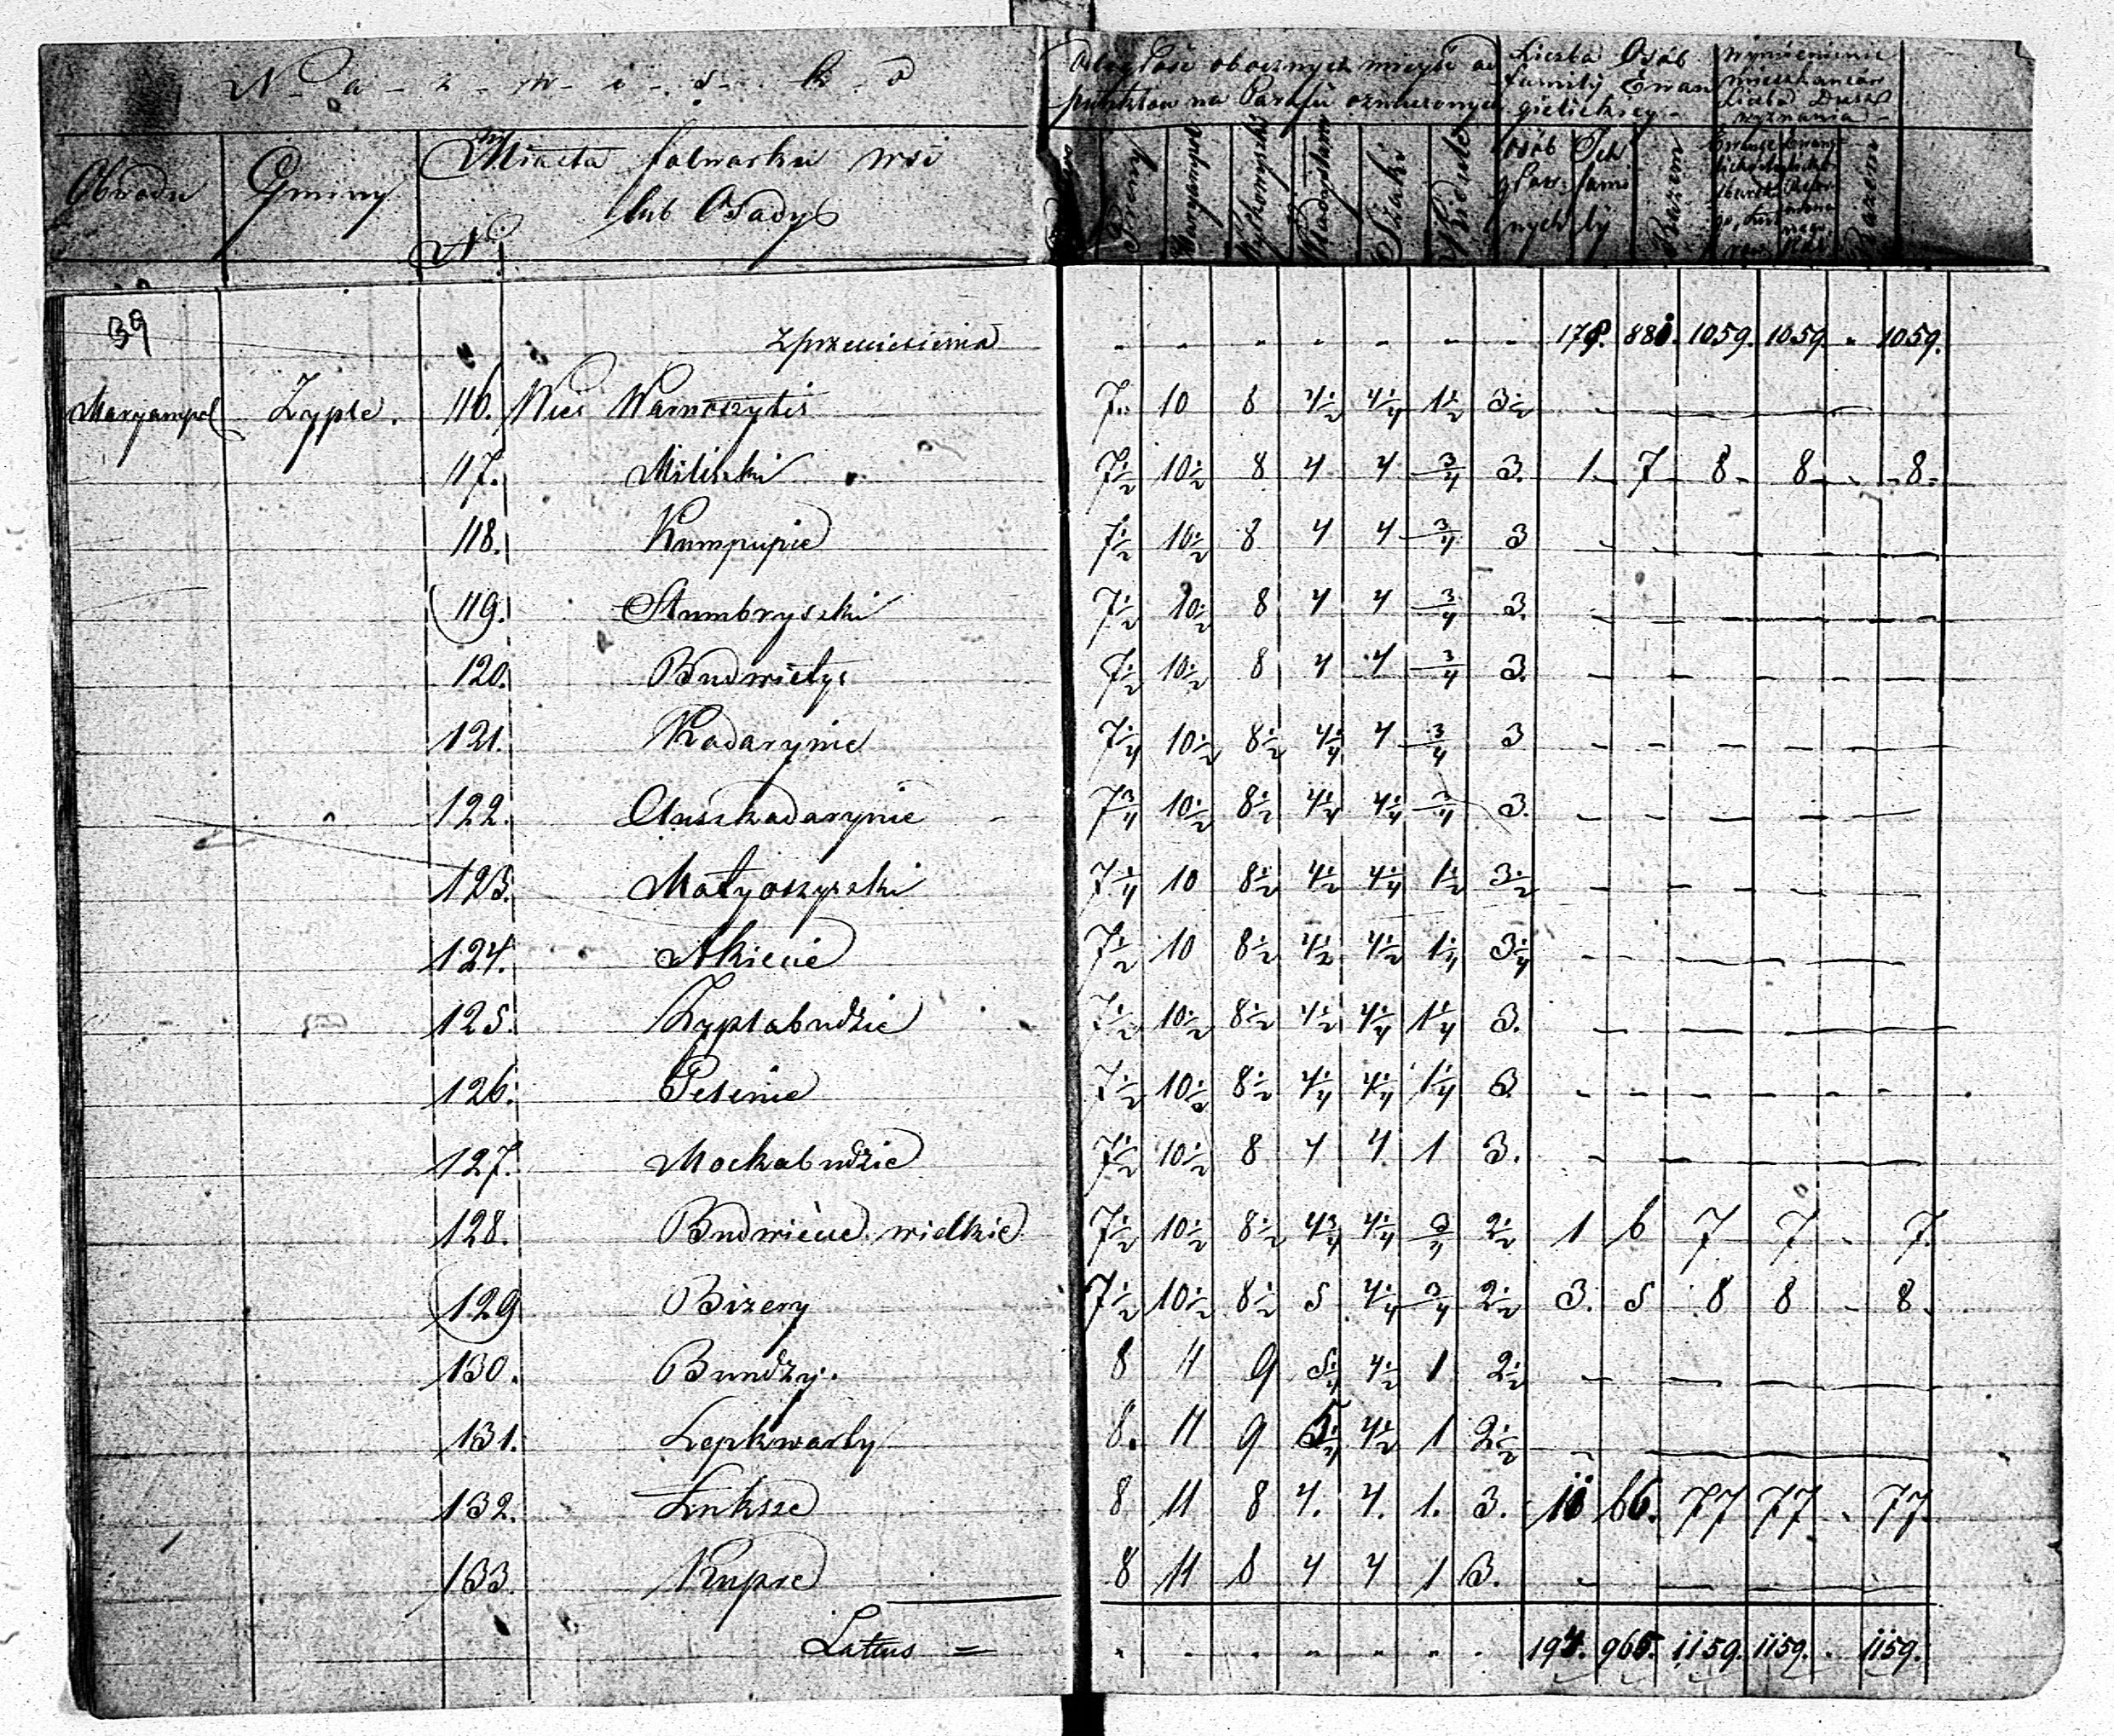 N a z w i s k o
Obwodu Gminy Miasta folwarku wsi
lub Osady
No
Odległość obocznych mieysc od
punktow na Parafii oznaczonych
Liczba Osób
familij Ewan
gielickiey
Wymienienie
mieszkanców
Liczba Dusz
wyznania
Maryampol Szaki Kidule Osób głów nych Ich fami lij Razem Razem
39 z przeniesienia - - - - - - - 179. 880. 1059. 1059. - 1059.
Maryampol Zyple. 116. Wies Warnoszytis 7. 10 8 4½ 4¼ 1½ 3½ -
117. Miliszki 7½ 10½ 8 4 4 ¾ 3. 1. 7 8 8 - 8
118. Kumpupie 7½ 10½ 8 4 4 ¾ 3 - -
119. Stumbryszki 7½ 10½ 8 4 4 ¾ 3. - -
120. Budwietys 7½ 10½ 8 4 4 ¾ 3. - -
121. Kadarynie 7¼ 10½ 8½ 4¼ 4 ¾ 3 - -
122. Auszkadarynie 7¾ 10½ 8½ 4¼ 4¼ ¾ 3. - -
123. Matyoszyszki 7¼ 10 8½ 4½ 4¼ 1½ 3½ - -
124. Akiecie 7½ 10 8½ 4½ 4½ 1¼ 3¼ - -
125. Zyplabudzie 7½ 10½ 8½ 4½ 4¼ 1¼ 3. - -
126. Pesinie 7½ 10½ 8½ 4¼ 4¼ 1¼ 3 - -
127. Mockabudzie 7½ 10½ 8 4 4 1 3. - -
128. Budwiecie wielkie 7½ 10½ 8½ 4¾ 4¼ ¾ 2½ 1 6 7 7 - 7.
129 Bizery 7½ 10½ 8½ 5 4¼ ¾ 2½ 3. 5 8 8 - 8.
130. Bundzy. 8 11 9 5¼ 4½ 1 2½ - -
131. Lepkwarty 8. 11 9 5¼ 4½ 1 2½ -
132. Luksze 8 11 8 4. 4. 1. 3. 11 66. 77 77 - 77.
133 Kupse 8 11 8 4 4 1 3. - -
Latus = - - - - - - - 194. 965. 1159. 1159. - 1159.